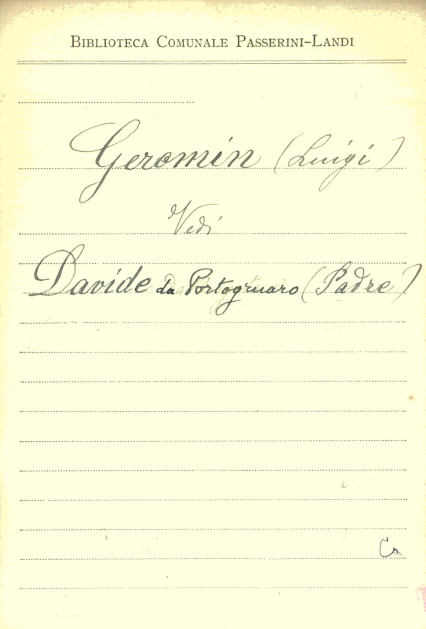 BIBLIOTECA COMUNALE PASSERINI-LANDI
Geromin (Luigi)
Vedi
Davide da Portogruaro (Padre)